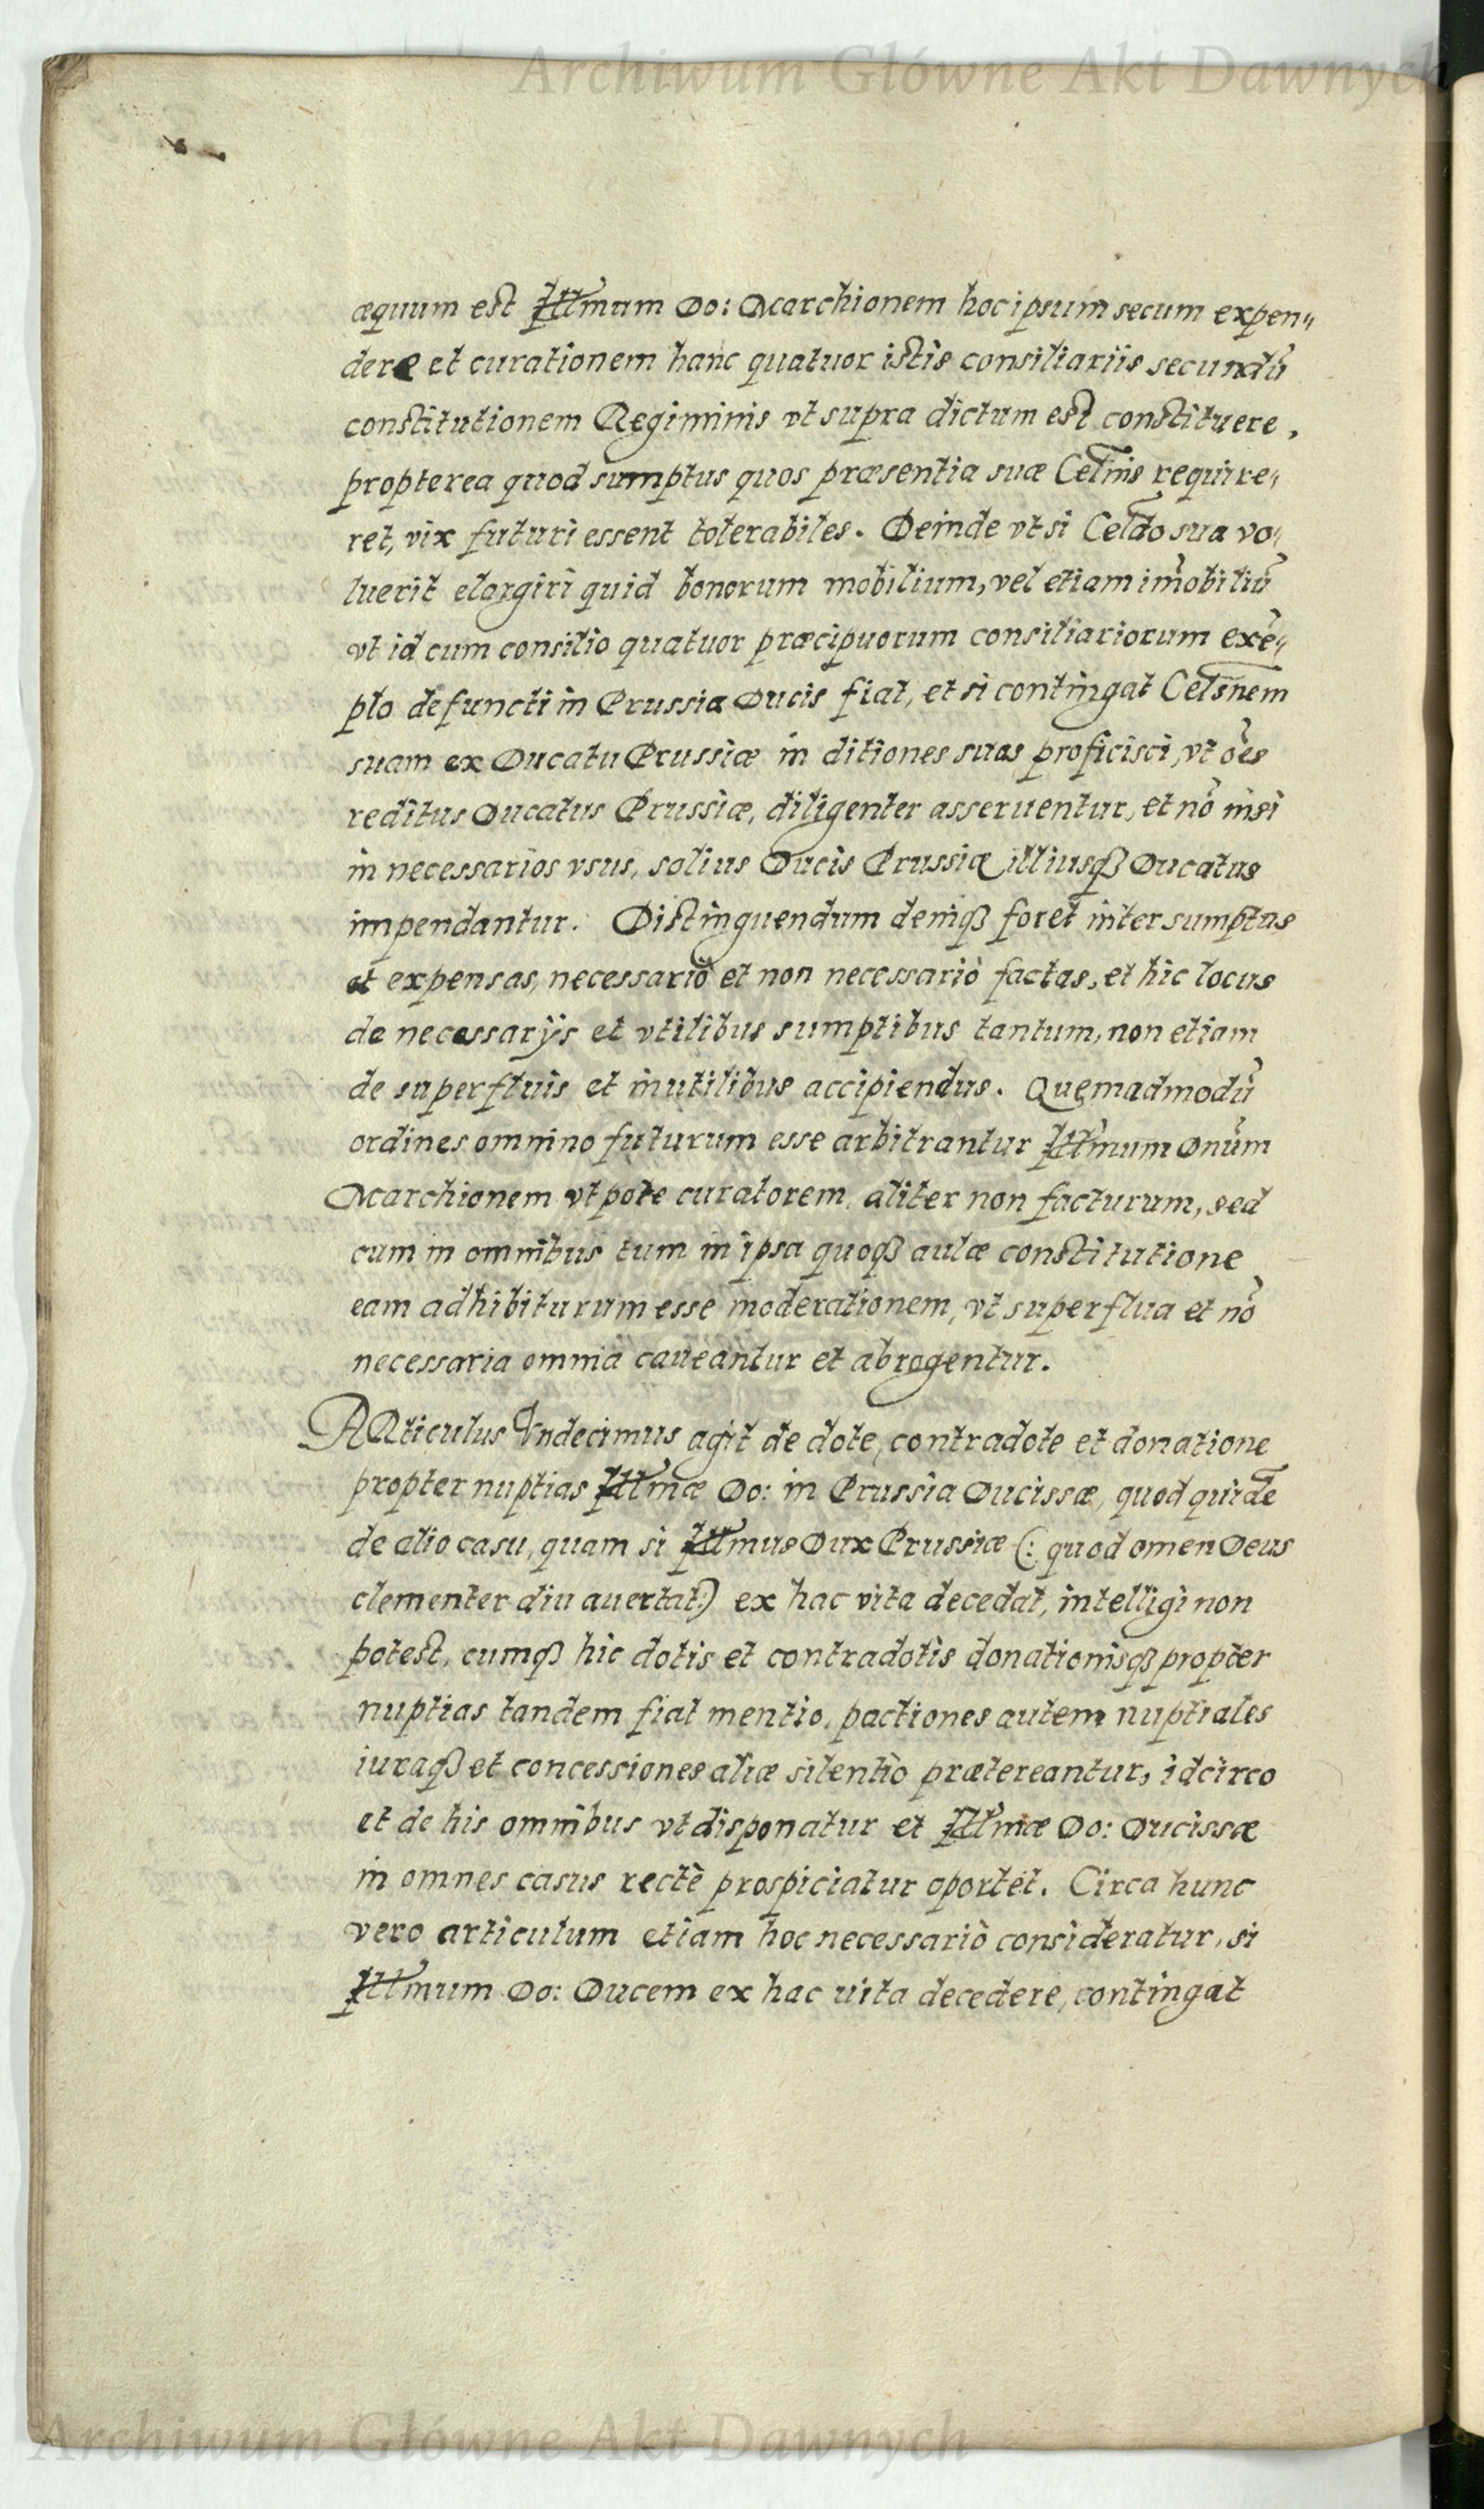 Archiwum Główne Akt Dawnych
æquum est Illmum Do: Marchionem hoc ipsum secum expen„
dere et curationem hanc quatuor istis consiliariis secundũ
constitutionem Regiminis vt supra dictum est constituere,
propterea quod sumptus quos præsentia suæ Celtnis require„
ret, vix futuri essent tolerabiles. Deinde vt si Celdo sua vo„
luerit elargiri quid bonorum mobilium, vel etiam im̃obiliũ
vt id cum consilio quatuor præcipuorum consiliariorum exẽ„
plo defuncti in Prussia Ducis fiat, et si contingat Celsnem
suam ex Ducatu Prussiæ in ditiones suas proficisci, vt oẽs
reditus Ducatus Prussiæ, diligenter asseruentur, et nõ nisi
in necessarios vsus, solius Ducis Prussiæ illiusqꝫ Ducatus
impendantur. Distinguendum deniqꝫ foret inter sumptus
et expensas, necessariò et non necessariò factas, et hic locus
de necessarÿs et vtilibus sumptibus tantum, non etiam
de superfluis et inutilibus accipiendus. Quemadmodũ
ordines omnino futurum esse arbitrantur Illmum Dnũm
Marchionem vt pote curatorem aliter non facturum, sed
cum in omnibus tum in ipsa quoqꝫ aulæ constitutione
eam adhibiturum esse moderationem, vt superflua et nõ
necessaria omnia caueantur et abrogentur.
ARticulus Vndecimus agit de dote, contradote et donatione
propter nuptias Illmæ Do: in Prussia Ducissæ, quod quidẽ
de alio casu, quam si Illmus Dux Prussiæ (: quod omen Deus
clementer diu auertat:) ex hac vita decedat, intelligi non
potest, cumqꝫ hic dotis et contradotis donationisqꝫ propter
nuptias tandem fiat mentio, pactiones autem nuptiales
iuraqꝫ et concessiones aliæ silentio prætereantur, idcirco
et de his omnibus vt disponatur et Illmæ Do: Ducissæ
in omnes casus rectè prospiciatur oportet. Circa hunc
vero articulum etiam hoc necessariò consideratur, si
Illmum Do: Ducem ex hac vita decedere, contingat
Archiwum Główne Akt Dawnych